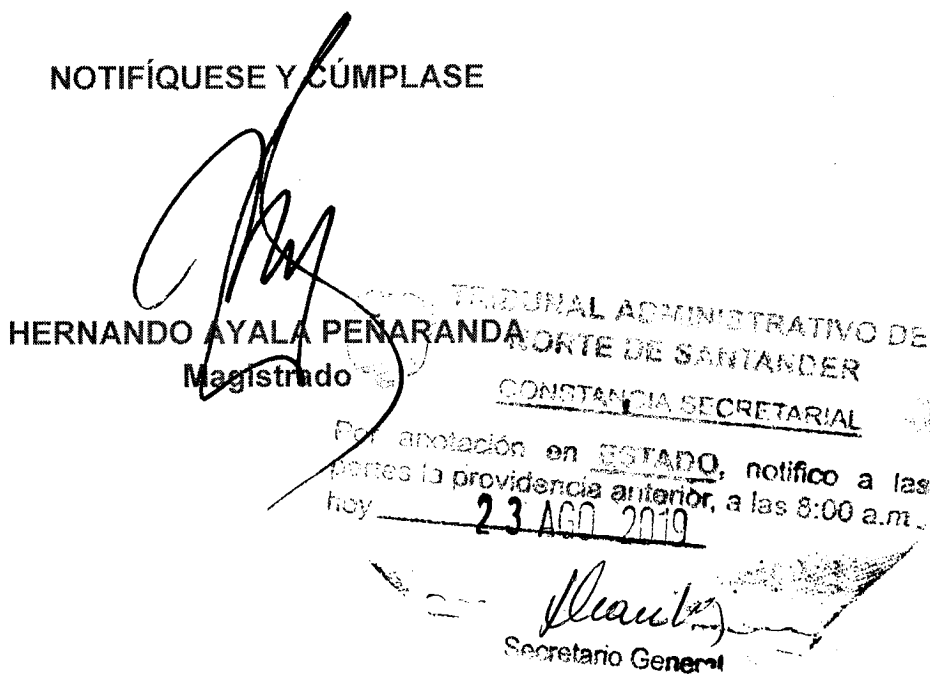 NOTIFÍQUESE Y CÚMPLASE
HERNANDO AYALA PEÑARANDA
Magistrado
TRIBUNAL ADMINISTRATIVO DE
NORTE DE SANTANDER
CONSTANCIA SECRETARIAL
Por anotación en ESTADO, notifico a las
partes la providencia anterior, a las 8:00 a.m.
hoy 23 AGO 2019
Secretario General